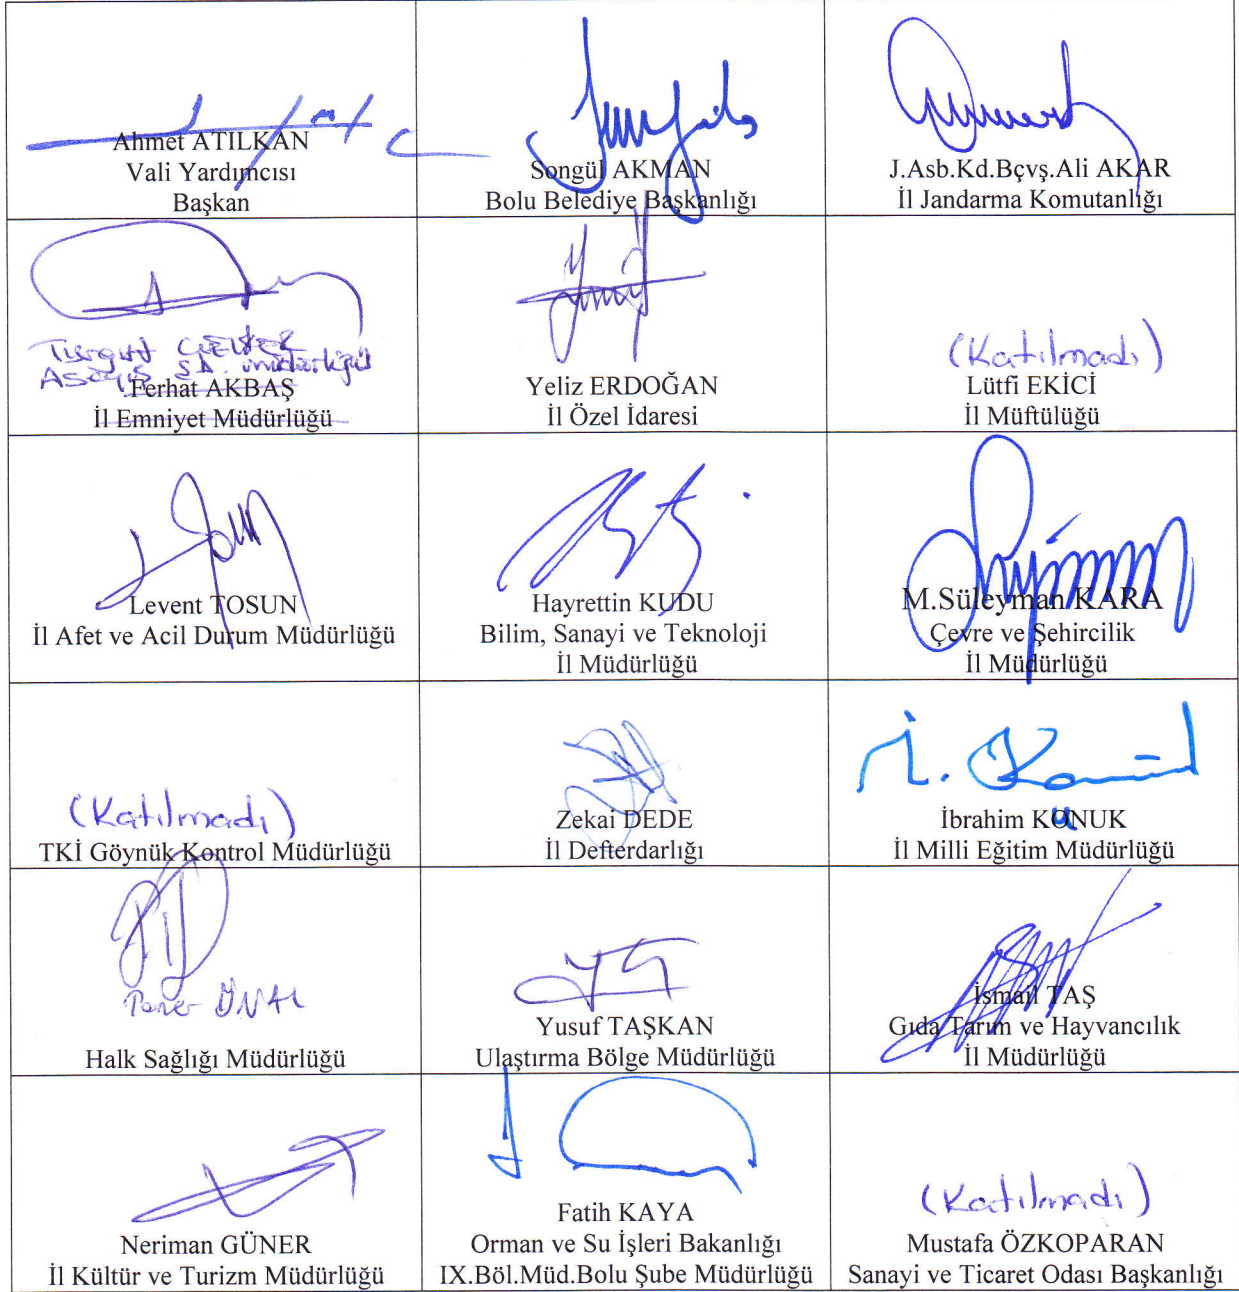 Ahmet ATILKAN
Vali Yardımcısı
Başkan
Songül AKMAN
Bolu Belediye Başkanlığı
J.Asb.Kd.Bçvş.Ali AKAR
İl Jandarma Komutanlığı
Turgut
Asayiş Şb. müdürlüğü
Ferhat AKBAŞ
İl Emniyet Müdürlüğü
Yeliz ERDOĞAN
İl Özel İdaresi
(Katılmadı)
Lütfi EKİCİ
İl Müftülüğü
Levent TOSUN
İl Afet ve Acil Durum Müdürlüğü
Hayrettin KUDU
Bilim, Sanayi ve Teknoloji
İl Müdürlüğü
M.Süleyman KARA
Çevre ve Şehircilik
İl Müdürlüğü
(Katılmadı)
TKİ Göynük Kontrol Müdürlüğü
Zekai DEDE
İl Defterdarlığı
İbrahim KONUK
İl Milli Eğitim Müdürlüğü
ÜNAL
Halk Sağlığı Müdürlüğü
Yusuf TAŞKAN
Ulaştırma Bölge Müdürlüğü
İsmail TAŞ
Gıda Tarım ve Hayvancılık
İl Müdürlüğü
Neriman GÜNER
İl Kültür ve Turizm Müdürlüğü
Fatih KAYA
Orman ve Su İşleri Bakanlığı
IX.Böl.Müd.Bolu Şube Müdürlüğü
(Katılmadı)
Mustafa ÖZKOPARAN
Sanayi ve Ticaret Odası Başkanlığı